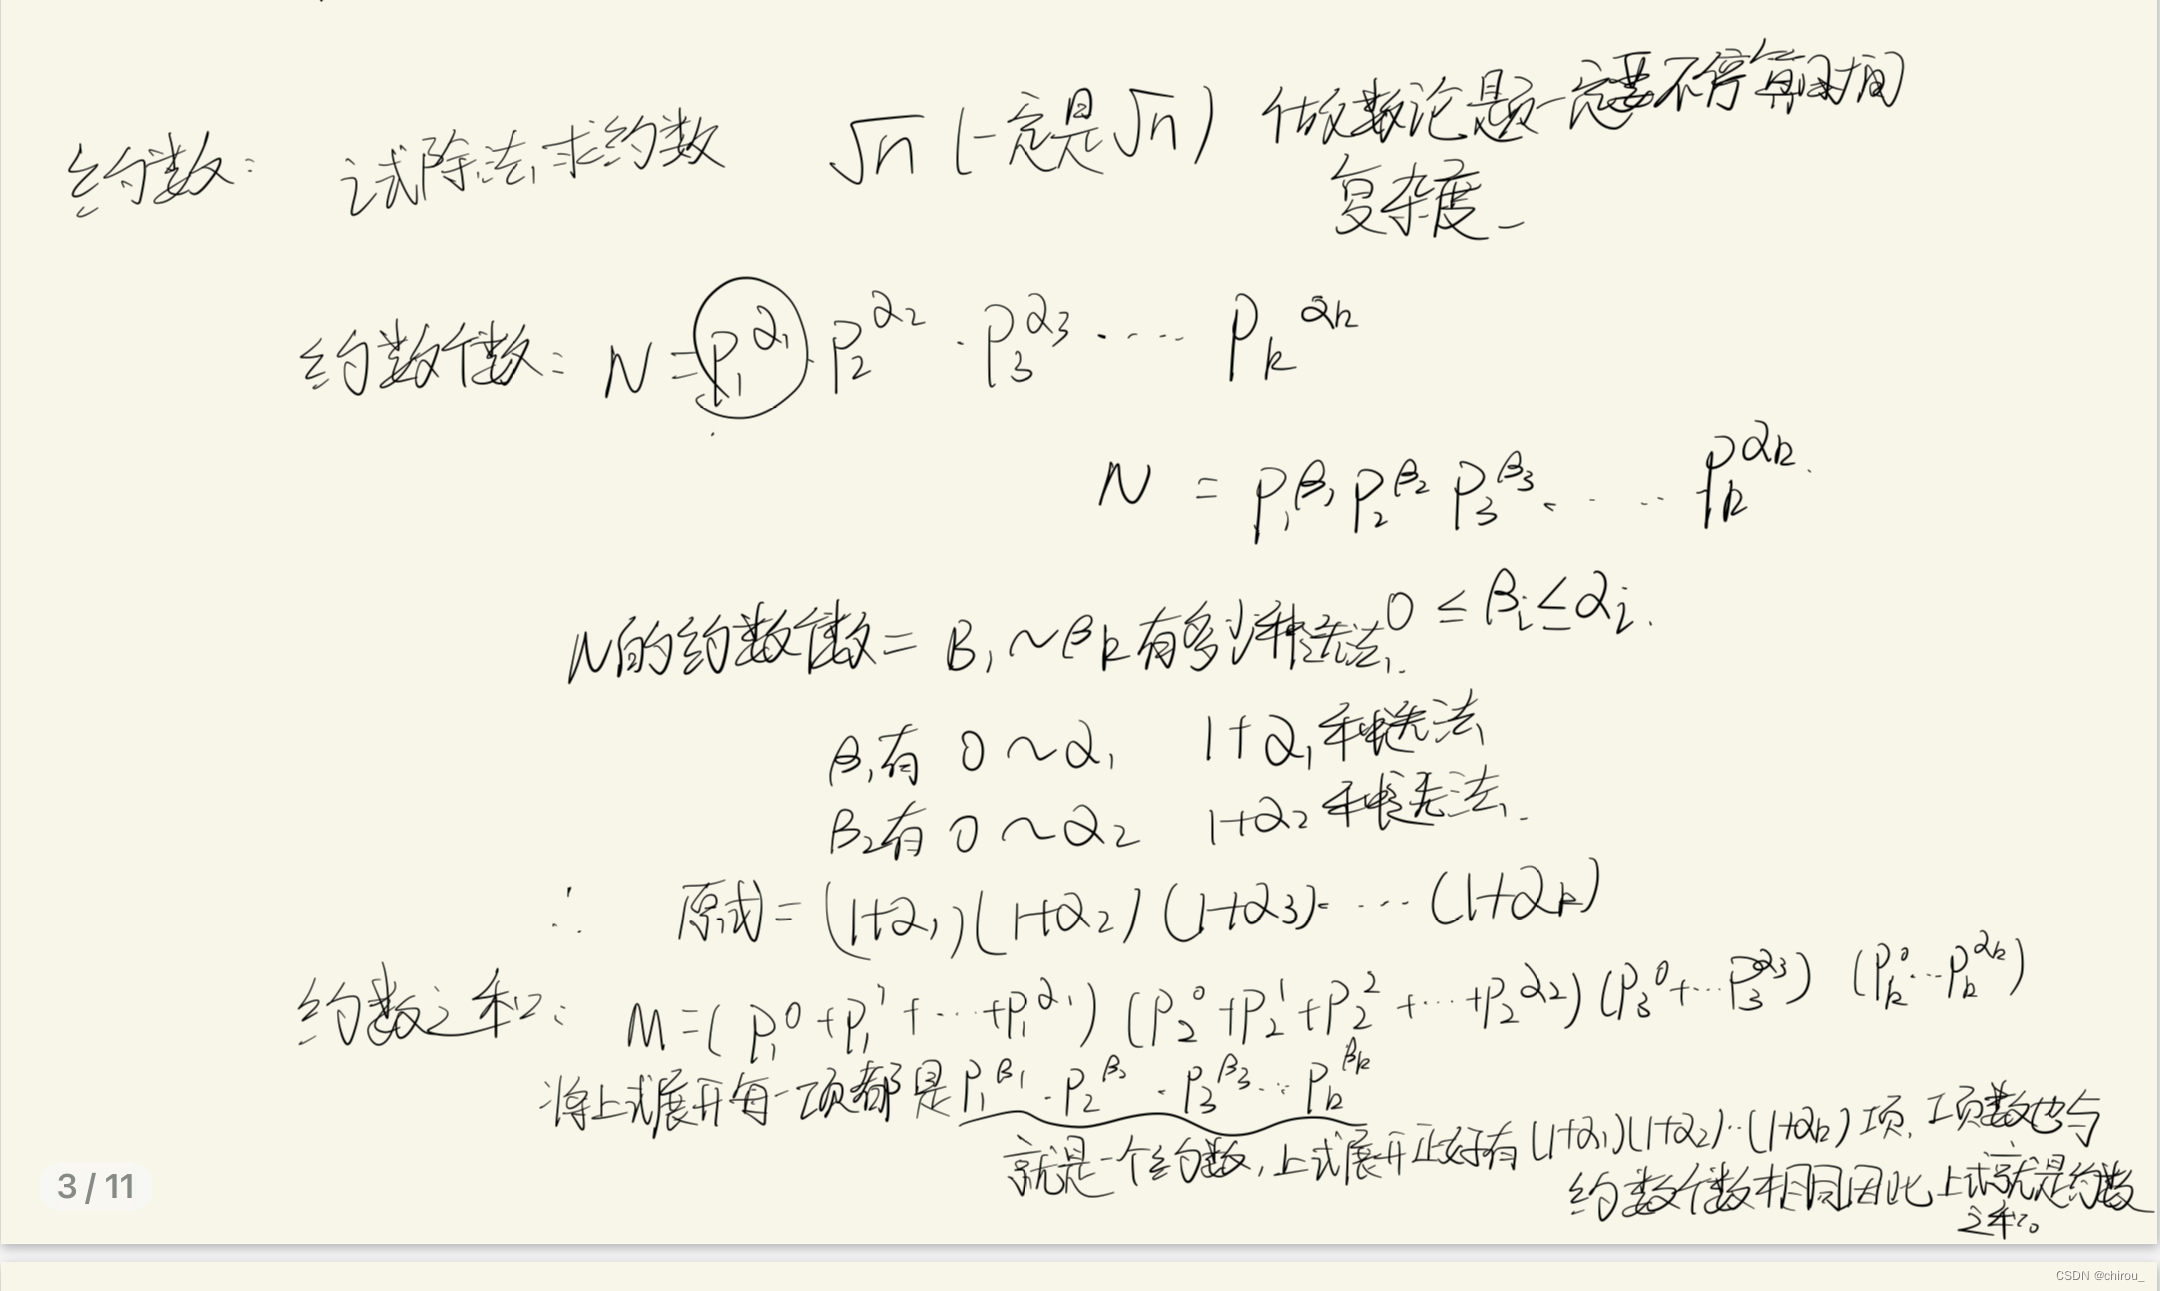 约数: 试除法求约数 √n (一定是√n) 做数论题一定要不停算时间
复杂度
约数个数: N = P₁^α₁ · P₂^α₂ · P₃^α₃ · ···· Pₖ^αₖ
N = P₁^β₁ P₂^β₂ P₃^β₃ ···· Pₖ^αₖ.
0 ≤ βᵢ ≤ αᵢ.
N的约数个数 = β₁ ~ βₖ 有多少种选法.
β₁有 0 ~ α₁ 1+α₁种选法
β₂有 0 ~ α₂ 1+α₂种选法.
∴ 原式 = (1+α₁)(1+α₂)(1+α₃)····(1+αₖ)
约数之和: M = (P₁^0 + P₁^1 + ··· + P₁^α₁) (P₂^0 + P₂^1 + P₂^2 + ··· + P₂^α₂) (P₃^0 + ··· P₃^α₃) (Pₖ^0 ··· Pₖ^αₖ)
将上式展开每一项都是 P₁^β₁ · P₂^β₂ · P₃^β₃ ··· Pₖ^βₖ
就是一个约数, 上式展开正好有(1+α₁)(1+α₂)··(1+αₖ)项, 项数也与
约数个数相同因此上式就是约数
之和。
3 / 11
CSDN @chirou_